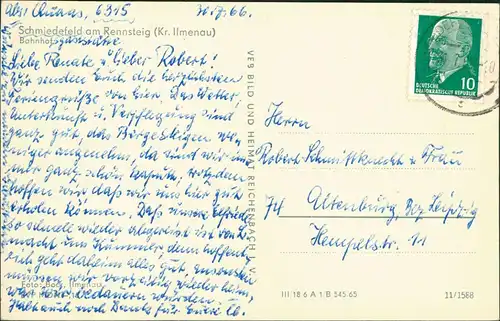 Abs. Quaas, 6315 20.7.66.
Schmiedefeld am Rennsteig (Kr. Ilmenau)
Bahnhofsgaststätte
Liebe Renate u. lieber Robert!
Wir senden Euch die herzlichsten
Feriengrüße von hier. Das Wetter,
Unterkunft u. Verpflegung sind
ganz gut, das Bergsteigen we-
niger angenehm, da sind wir im-
mer ganz schön kaputt, trotzdem
hoffen wir daß wir uns hier gut
erholen können. Daß
so schnell wieder abgereist ist
macht uns Kummer, denn hoffent-
lich geht daheim alles gut, ansonsten
müssen wir vorzeitig wieder heim,
was wir bedauern würden.
Habt auch noch Dank für Eure
Foto: Beck, Ilmenau
VEB BILD UND HEIMAT REICHENBACH I. V.
10
DEUTSCHE
DEMOKRATISCHE REPUBLIK
Herrn
Robert Schmittknecht u. Frau
Altenburg, Bez. Leipzig
Hempelstr. 11
III 18 6 A 1 B 345/65 11/1588